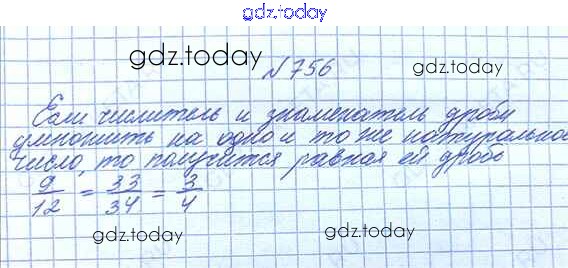 gdz.today
gdz.today
№756
gdz.today
Если числитель и знаменатель дроби
умножить на одно и то же натуральное
число, то получится равная ей дробь
9/12 = 33/34 = 3/4
gdz.today
gdz.today